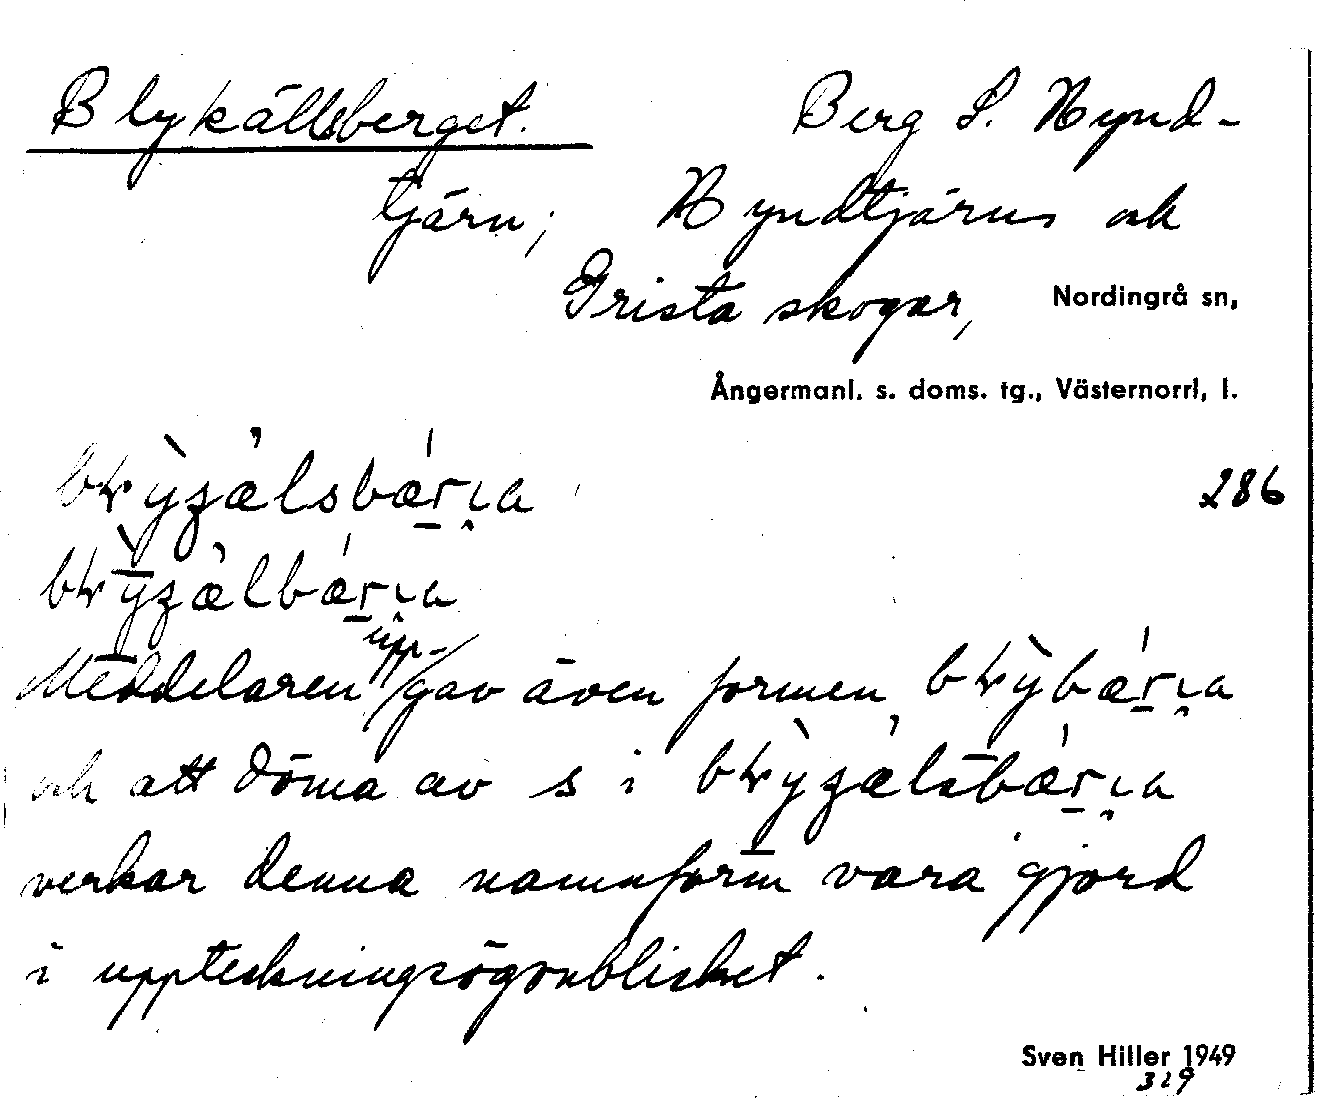 Blykällsberget. Berg S. Nynd-
tjärn; Nyndtjärns och
Grista skogar, Nordingrå sn,
Ångermanl. s. doms. tg., Västernorrl, l.
286
Meddelaren upp-/gav även formen
och att döma av s i
verkar denna namnform vara gjord
i uppteckningsögonblicket.
Sven Hiller 1949
329